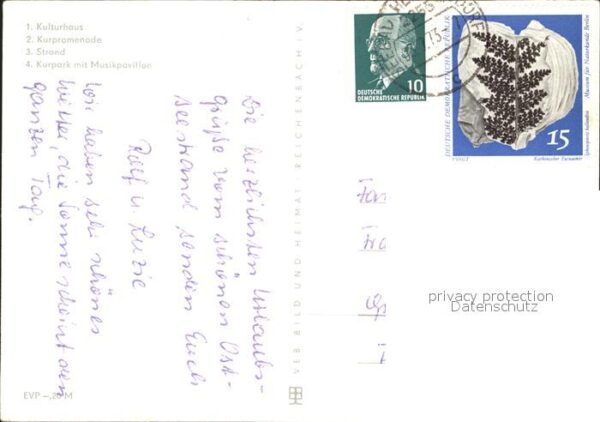 1. Kulturhaus
2. Kurpromenade
3. Strand
4. Kurpark mit Musikpavillon
Die herzlichsten Urlaubs-
grüße vom schönen Ost-
seestrand senden Euch
Rolf u. Luzie
Wir haben sehr schönes
Wetter, die Sonne scheint den
ganzen Tag.
EVP –,20 M
VEB BILD UND HEIMAT REICHENBACH I. V.
10
DEUTSCHE
DEMOKRATISCHE REPUBLIK
DEUTSCHE DEMOKRATISCHE REPUBLIK
15
Museum für Naturkunde Berlin
VOIGT
privacy protection
Datenschutz